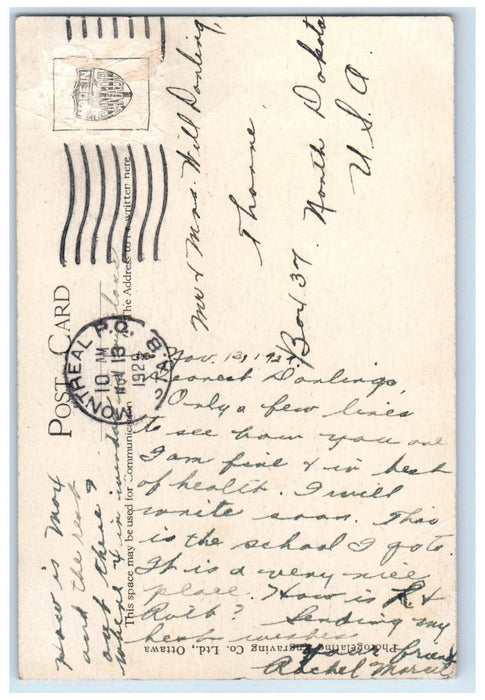 POST CARD
This space may be used for Communication
The Address to be written here
Photogelatine Engraving Co. Ltd., Ottawa
MONTREAL P.Q.
10 AM
NOV 13
1929
Mr & Mrs. Will Darling,
Thorne,
Box 37. North Dakota
U.S.A.
Nov. 13, 1929
Dearest Darlings,
Only a few lines
to see how you are
I am fine & in best
of health. I will
write soon. This
is the school I go to.
It is a very nice
place. How is R. &
Ruth? Sending my
best wishes
Your friend
Rachel
How is Max
and the rest
out there?
where & in